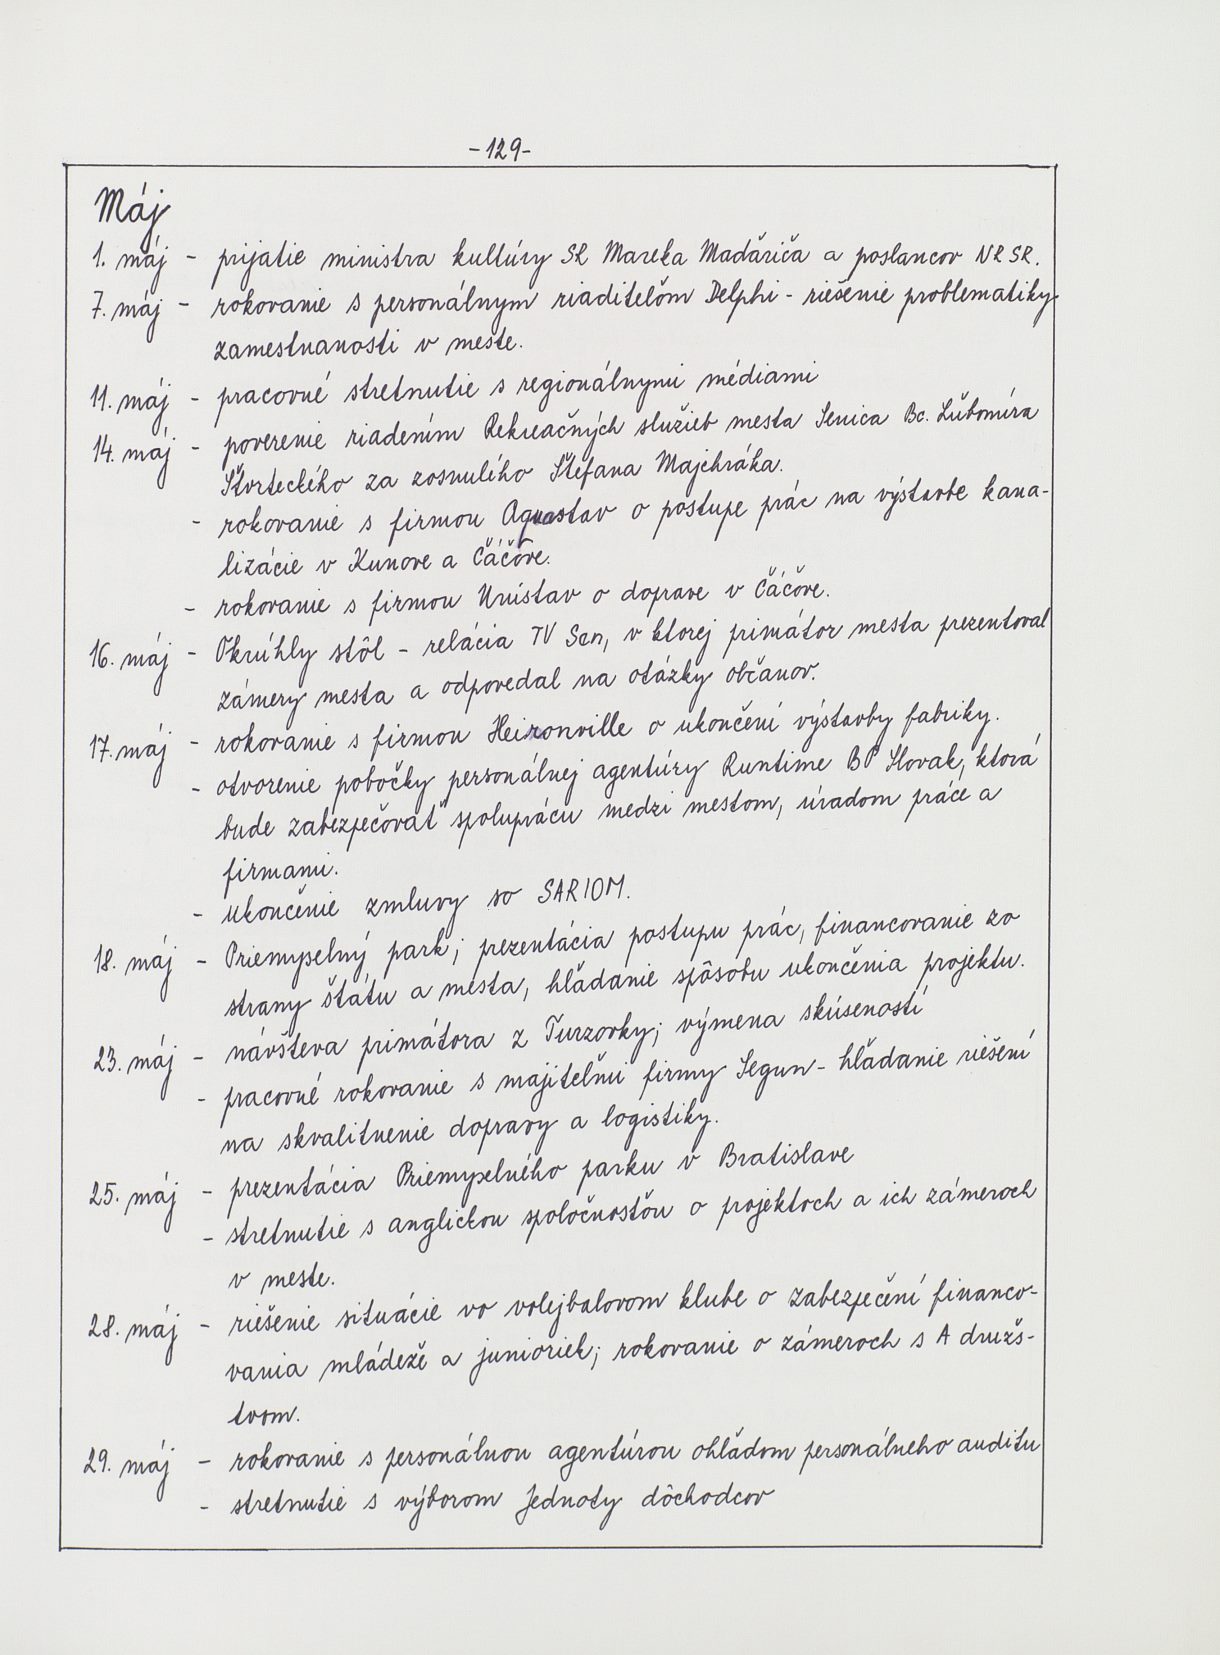 -129-
Máj
1. máj - prijatie ministra kultúry SR Mareka Maďariča a poslancov NR SR.
7. máj - rokovanie s personálnym riaditeľom Delphi - riešenie problematiky
zamestnanosti v meste.
11. máj - pracovné stretnutie s regionálnymi médiami
14. máj - poverenie riadením Rekreačných služieb mesta Senica Bc. Ľubomíra
Štvrteckého za zosnulého Štefana Majchráka.
- rokovanie s firmou Aquastav o postupe prác na výstavbe kana-
lizácie v Kunove a Čáčove.
- rokovanie s firmou Unistav o doprave v Čáčove.
16. máj - Okrúhly stôl - relácia TV Sen, v ktorej primátor mesta prezentoval
zámery mesta a odpovedal na otázky občanov.
17. máj - rokovanie s firmou Heironville o ukončení výstavby fabriky.
- otvorenie pobočky personálnej agentúry Runtime BP Slovak, ktorá
bude zabezpečovať spoluprácu medzi mestom, úradom práce a
firmami.
- ukončenie zmluvy so SARIOM.
18. máj - Priemyselný park; prezentácia postupu prác, financovanie zo
strany štátu a mesta, hľadanie spôsobu ukončenia projektu.
23. máj - návšteva primátora z Turzovky; výmena skúseností
- pracovné rokovanie s majiteľmi firmy Segum - hľadanie riešení
na skvalitnenie dopravy a logistiky.
25. máj - prezentácia Priemyselného parku v Bratislave
- stretnutie s anglickou spoločnosťou o projektoch a ich zámeroch
v meste.
28. máj - riešenie situácie vo volejbalovom klube o zabezpečení financo-
vania mládeže a junioriek; rokovanie o zámeroch s A družs-
tvom.
29. máj - rokovanie s personálnou agentúrou ohľadom personálneho auditu
- stretnutie s výborom Jednoty dôchodcov